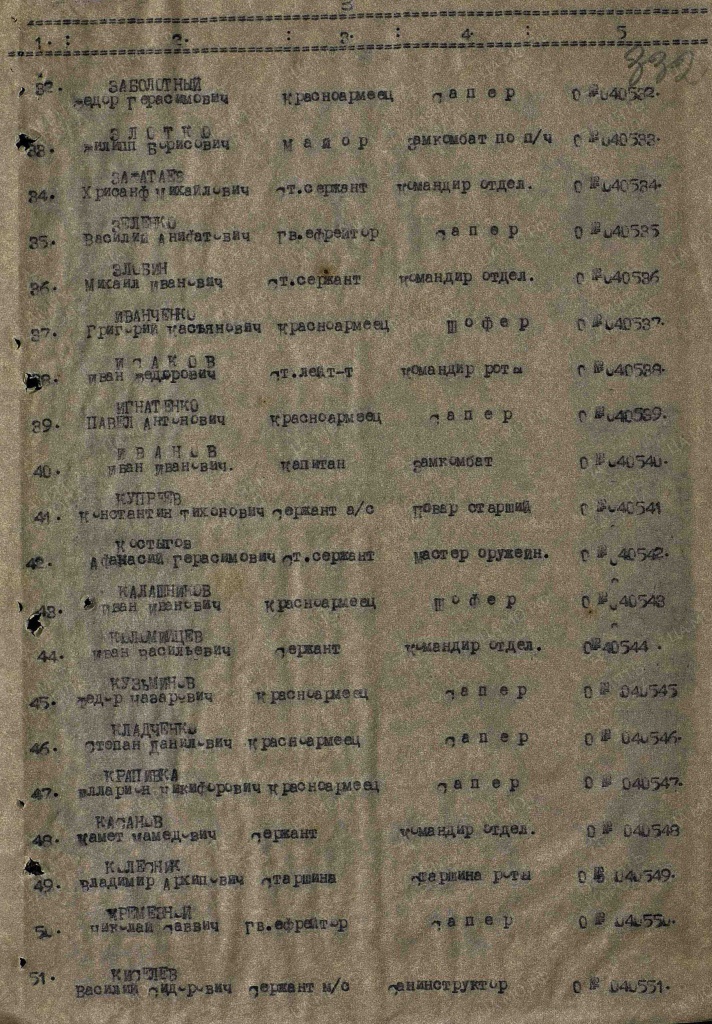 3
1. : 2. : 3. : 4. : 5
332
32. ЗАБОЛОТНЫЙ
Федор Герасимович Красноармеец Сапер О №040532.
33. ЗЛОТКО
Филипп Борисович Майор Замкомбат по п/ч О №040533.
34. Хрисанф Михайлович Ст.сержант Командир отдел. О №040534.
35. ЗЕЛЕНКО
Василий Анифатович Гв.ефрейтор Сапер О №040535
36. ЗЛОБИН
Михаил Иванович Ст.сержант Командир отдел. О №040536
37. ИВАНЧЕНКО
Григорий Касьянович Красноармеец Шофер О №040537.
38. ИСАКОВ
Иван Федорович Ст.лейт-т Командир роты О №040538.
39. ИГНАТЕНКО
ПАВЕЛ Антонович Красноармеец Сапер О №040539.
40. ИВАНОВ
Иван Иванович. Капитан Замкомбат О №040540.
41. КУПРЕЕВ
Константин Тихонович Сержант а/с Повар старший О №040541
42. Костыгов
Афанасий Герасимович Ст.сержант Мастер оружейн. О №040542.
43. КАЛАШНИКОВ
Иван Иванович Красноармеец Шофер О №040543
44. КОЛОМИЙЦЕВ
Иван Васильевич Сержант Командир отдел. О №40544.
45. КУЗЬМИНОВ
Федор Назарович Красноармеец Сапер О № 040545
46. КЛАДЧЕНКО
Степан Данилович Красноармеец Сапер О № 040546.
47. КРАПИВКА
Илларион Никифорович Красноармеец Сапер О № 040547.
48. КАСАНОВ
Мамет Мамедович Сержант Командир отдел. О № 040548
49. КОЛЕСНИК
Владимир Архипович Старшина Старшина роты О № 040549.
50. КРЕМЕЗНОЙ
Николай Саввич Гв.ефрейтор Сапер О № 040550.
51. КИСЕЛЕВ
Василий Сидорович Сержант м/с Санинструктор О № 040551.